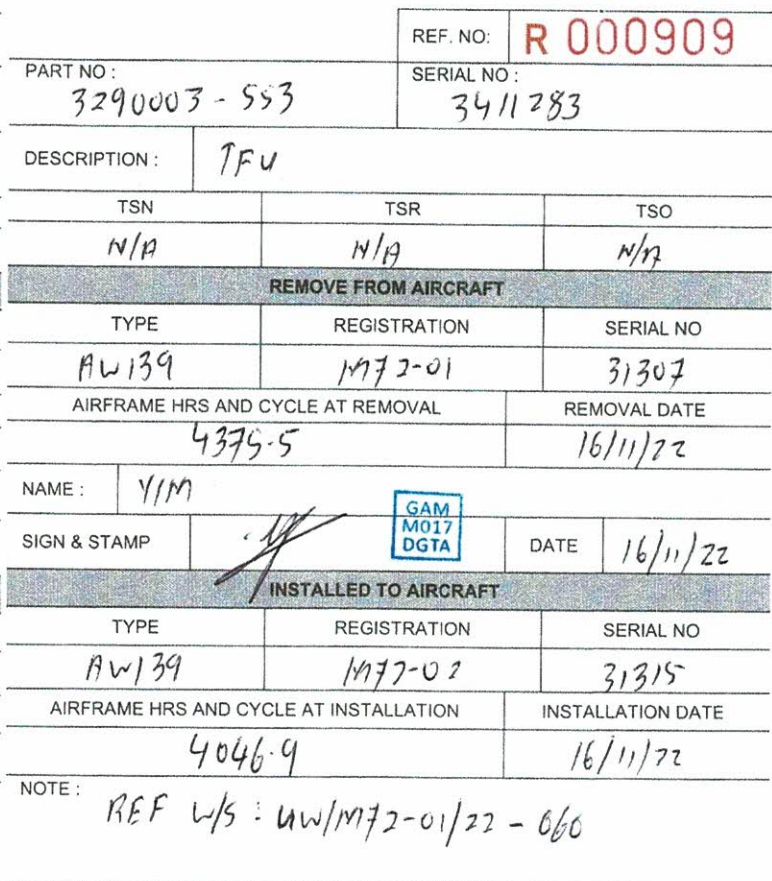 REF. NO: R 000909
PART NO : SERIAL NO :
3290003 - SS3 3411283
DESCRIPTION : TFU
TSN TSR TSO
N/A N/A N/A
REMOVE FROM AIRCRAFT
TYPE REGISTRATION SERIAL NO
AW139 M72-01 31307
AIRFRAME HRS AND CYCLE AT REMOVAL REMOVAL DATE
4375.5 16/11/22
NAME : YIM
GAM
M017
DGTA
SIGN & STAMP DATE 16/11/22
INSTALLED TO AIRCRAFT
TYPE REGISTRATION SERIAL NO
AW139 M72-02 31315
AIRFRAME HRS AND CYCLE AT INSTALLATION INSTALLATION DATE
4046.9 16/11/22
NOTE :
REF W/S : UW/M72-01/22 - 060